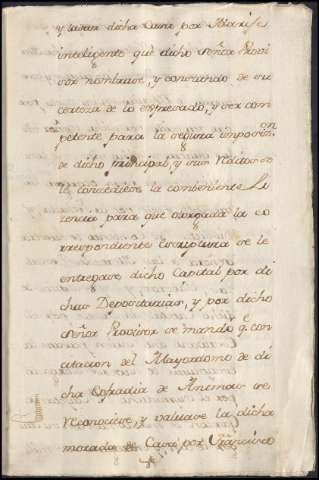 y tasar dicha Casa por Alarife
inteligente que dicho señor Provi
sor nombrase, y constando de su
certeza de lo expresado, y ser com
petente para la segura imposicion
de dicho principal, y sus Reditos se
le concediese la combeniente Li
cencia para que otorgada la co
rrespondiente Escriptura se le
entregase dicho Capital por di
chas Depositarias, y por dicho
señor Provisor se mando q.e con
citacion del Mayordomo de di
cha Cofradia de Animas se
Reconociese, y valuase la dicha
morada de Casa por Francisco